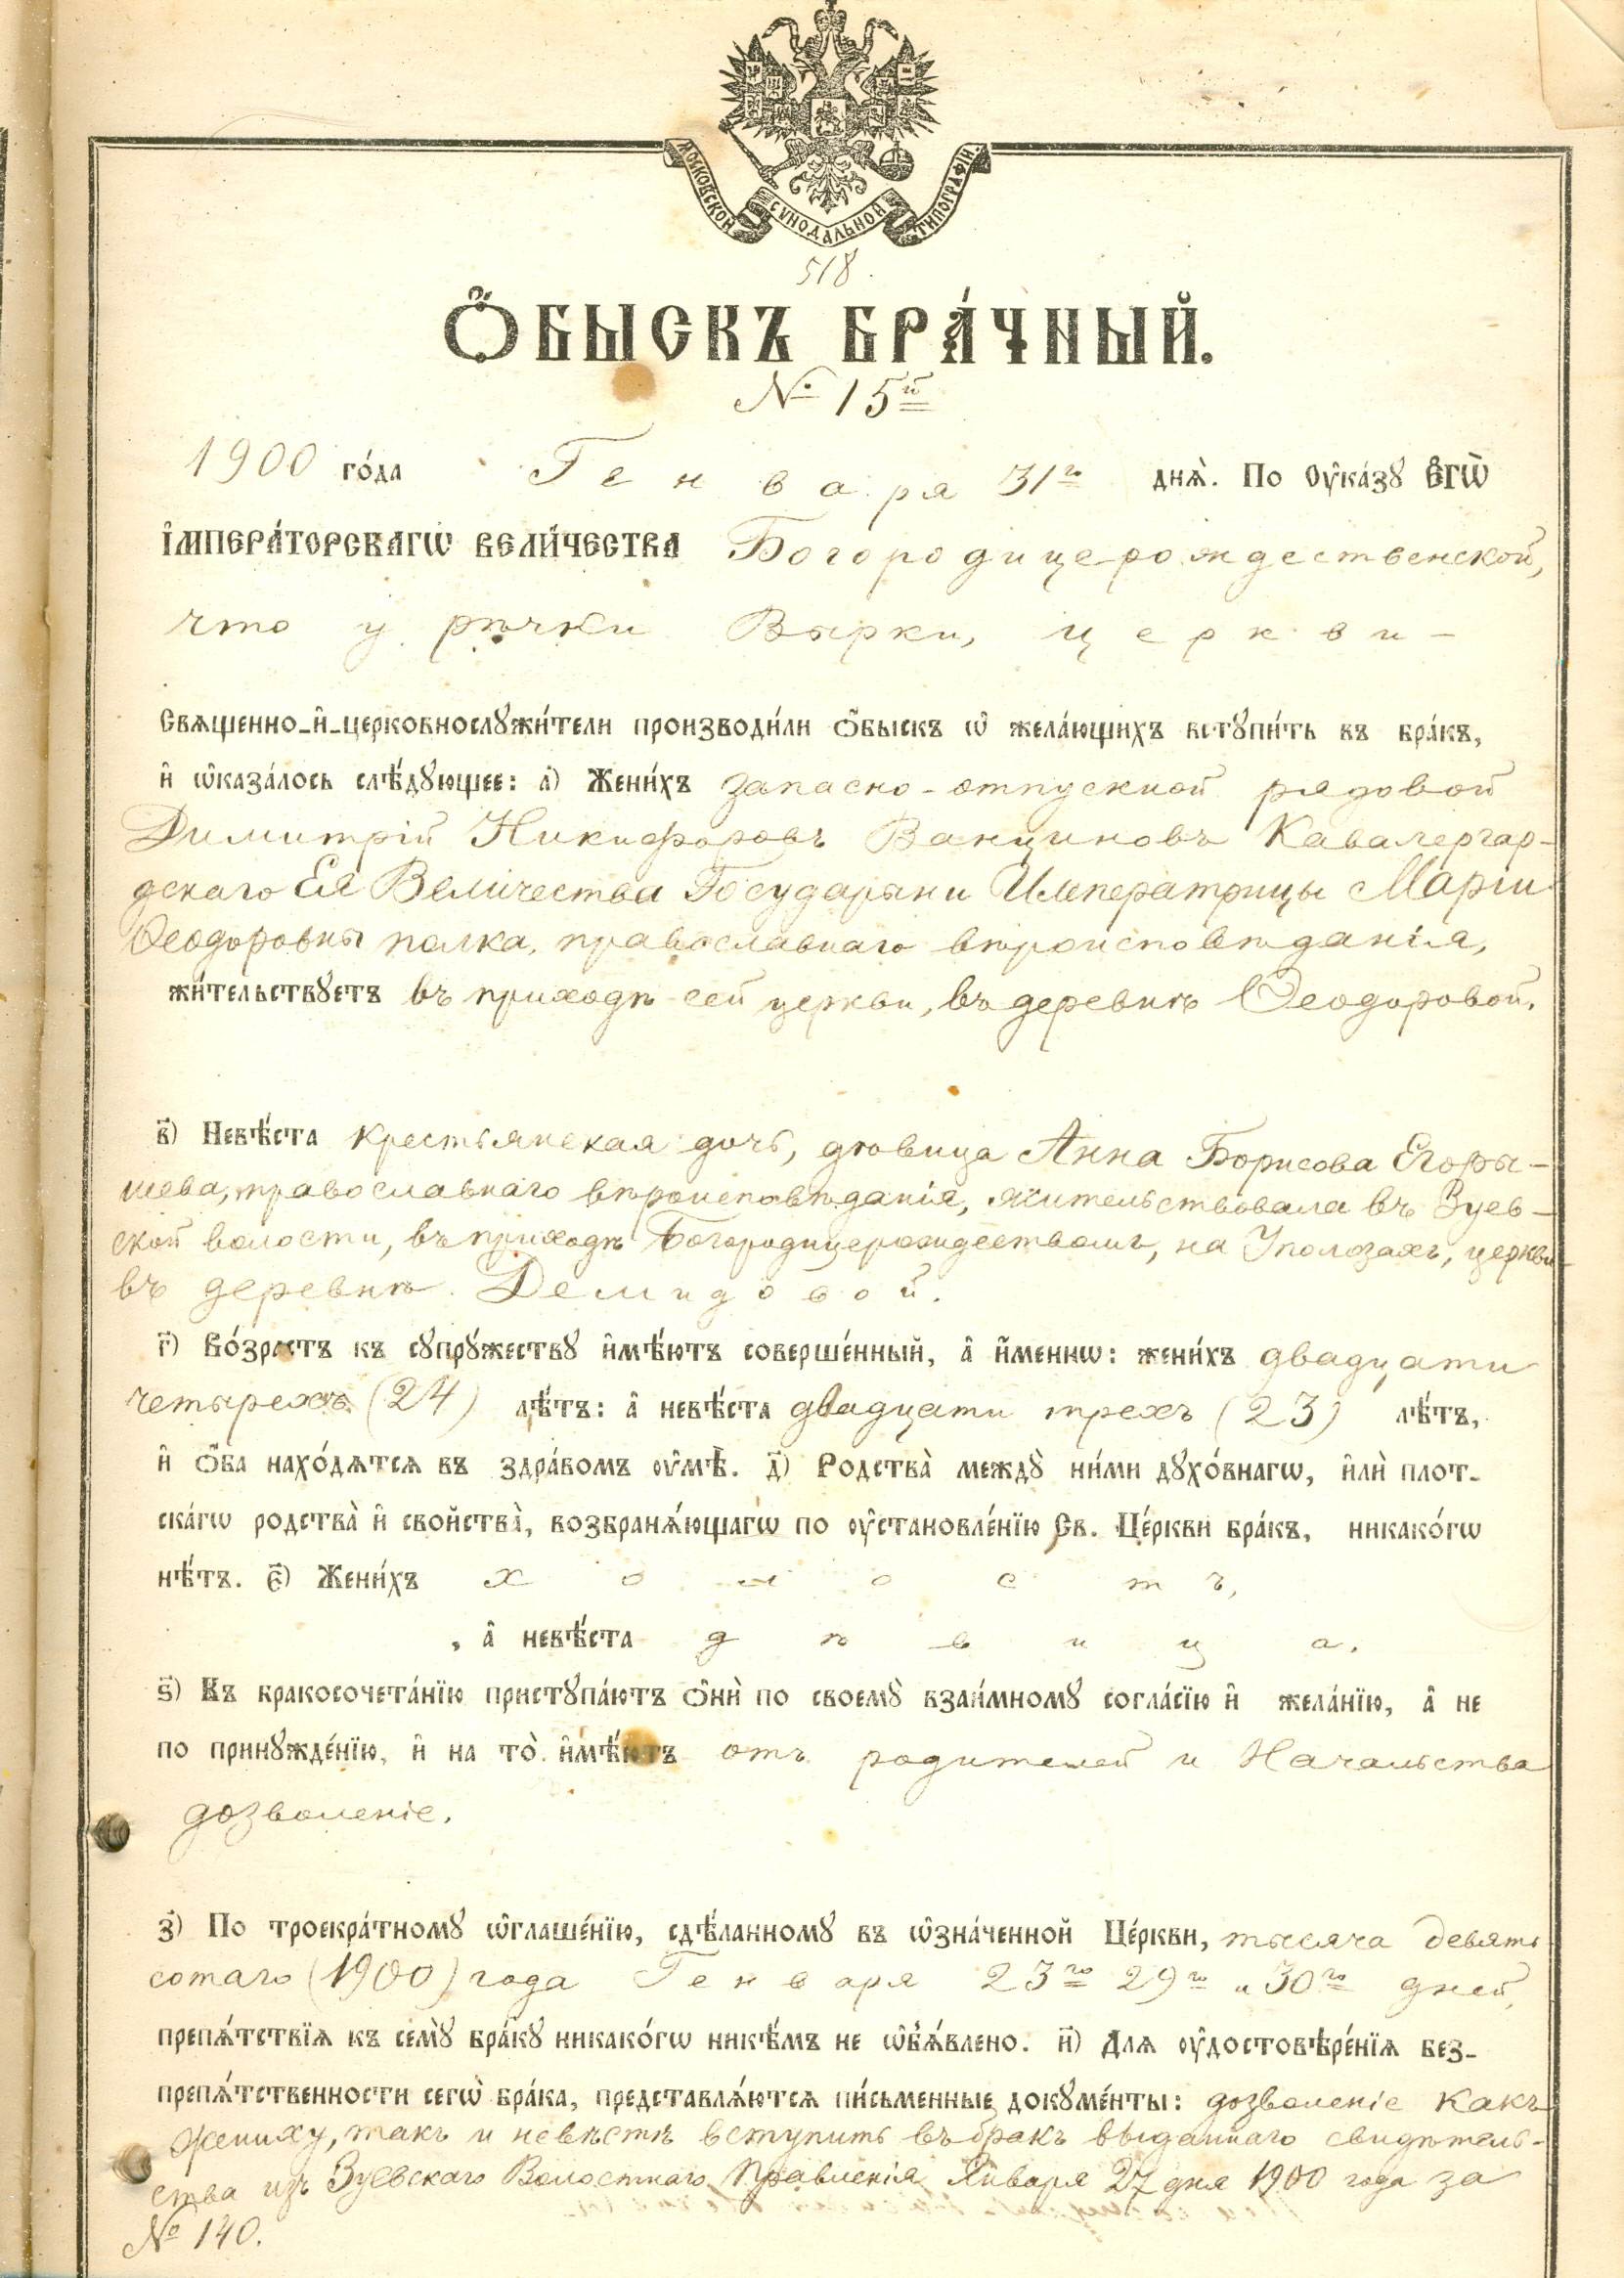 МОСКОВСКОЙ СѴНОДАЛЬНОЙ ТИПОГРАФІИ.
518.
Ѻ҆БЫСКЪ БРА́ЧНЫЙ.
№ 15й
1900 го́да Генваря 31го днѧ̀. По Оу҆ка́зꙋ Е҆ГѠ̀
І҆МПЕРА́ТОРСКАГѠ ВЕЛИ́ЧЕСТВА Богородицерождественской,
что у рѣчки Вырки, церкви –
Свѧщенно-и҆-церковнослꙋжи́тели производи́ли ѻ҆́быскъ ѡ҆ жела́ющихъ встꙋпи́ть въ бра́къ,
и҆ ѡ҆каза́лось слѣ́дꙋющее: а҃) Жени́хъ запасно-отпускной рядовой
Димитрій Никифоровъ Ванциновъ Кавалергар-
дскаго Ея Величества Государыни Императрицы Маріи
Ѳеодоровны полка, православнаго вѣроисповѣданія,
жи́тельствꙋетъ въ приходѣ сей церкви, въ деревнѣ Ѳеодоровой.
в҃) Невѣ́ста крестьянская дочь, дѣвица Анна Борисова Егоры-
шева, православнаго вѣроисповѣданія, жительствовала въ Зуев-
ской волости, въ приходѣ Богородицерождествомъ, на Уполозахъ, церкви
въ деревнѣ Демидовой.
г҃) Во́зрастъ къ сꙋпрꙋ́жествꙋ и҆мѣ́ютъ соверше́нный, а҆ и҆́меннѡ: жени́хъ двадцати
четырехъ (24) лѣ́тъ: а҆ невѣ́ста двадцати трехъ (23) лѣ́тъ,
и҆ ѻ҆́ба нахо́дѧтсѧ въ здра́вомъ оу҆мѣ̀. д҃) Родства̀ междꙋ̀ ни́ми дꙋхо́внагѡ, и҆лѝ плот-
ска́гѡ родства̀ и҆ свойства̀, возбранѧ́ющагѡ по оу҆становле́нїю Св. Це́ркви бра́къ, никако́гѡ
нѣ́тъ. є҃) Жени́хъ холостъ,
, а҆ невѣ́ста дѣвица.
ѕ҃) Къ бракосочета́нїю пристꙋпа́ютъ ѻ҆нѝ по своемꙋ̀ взаи́мномꙋ согла́сїю и҆ жела́нїю, а҆ не
по принꙋжде́нїю, и҆ на то̀ и҆мѣ́ютъ отъ родителей и Начальства
дозволеніе.
з҃) По троекра́тномꙋ ѡ҆глаше́нїю, сдѣ́ланномꙋ въ ѡ҆зна́ченной Це́ркви, тысяча девять
сотаго (1900) года Генваря 23го 29го и 30го дней,
препѧ́тствїѧ къ семꙋ̀ бра́кꙋ никако́гѡ никѣ́мъ не ѡ҆б̾ѧ́влено. и҃) Для оу҆достовѣре́нїѧ без-
препѧ́тственности сегѡ̀ бра́ка, представлѧ́ютсѧ пи́сьменные докꙋме́нты: дозволеніе какъ
жениху, такъ и невѣстѣ вступить въ бракъ выданнаго свидѣтель-
ства изъ Зуевскаго Волостнаго Правленія Января 27 дня 1900 года за
№ 140.